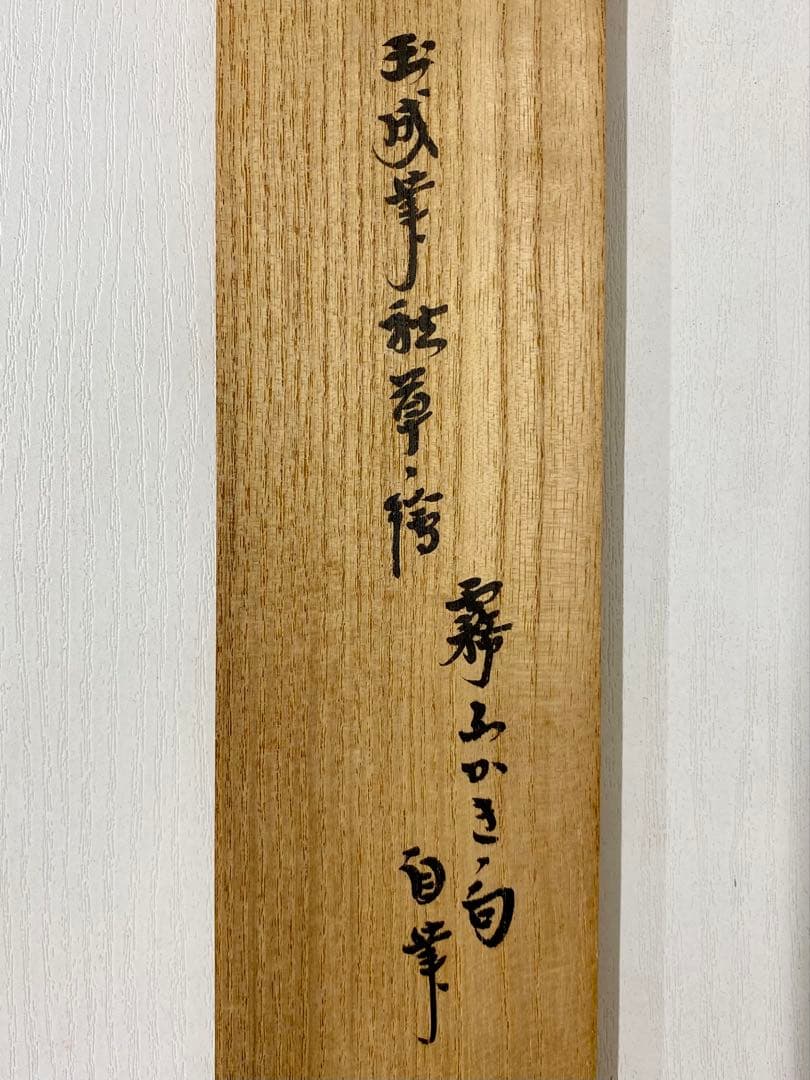 玉成筆秋草ノ繪
霧ふかきノ句
自筆